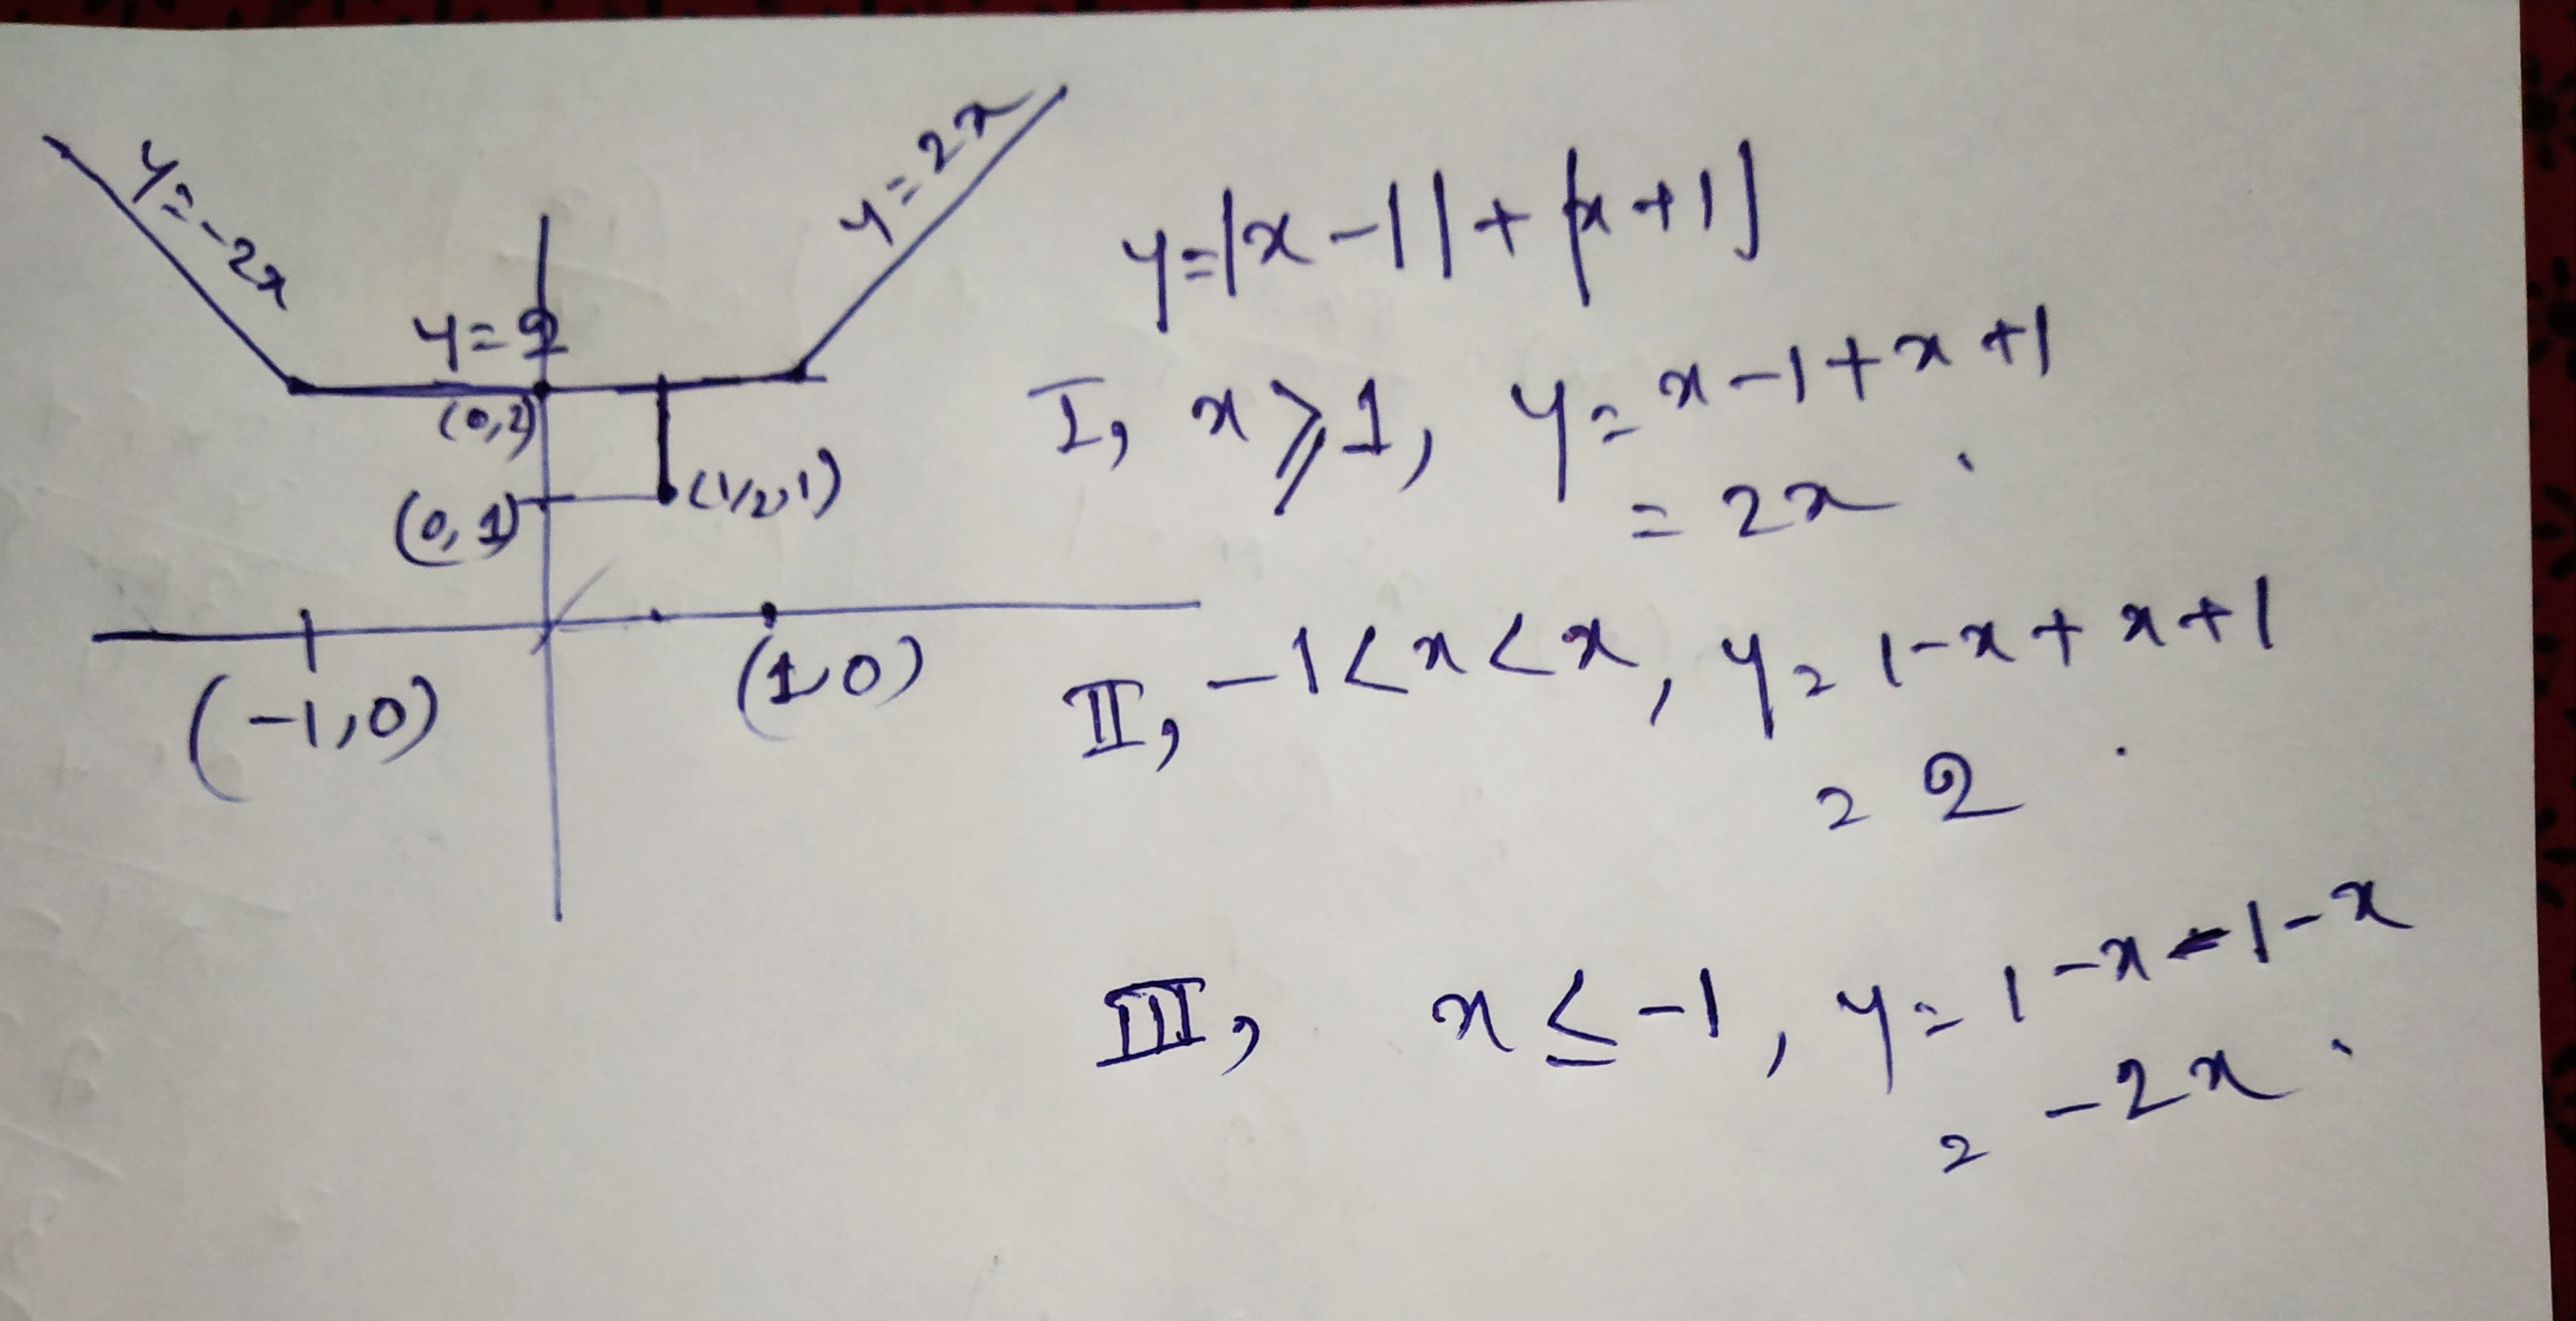 y=-2x
y=2x
y=2
(0,2)
(0,1)
(1/2,1)
(-1,0)
(1,0)
y=|x-1|+|x+1|
I, x⩾1, y=x-1+x+1
=2x.
II, -1<x<x, y=1-x+x+1
=2.
III, x≤-1, y=1-x-1-x
=-2x.